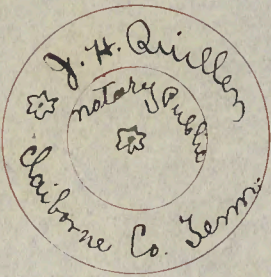 J. H. Quillen
Notary Public
Claiborne Co. Tenn.